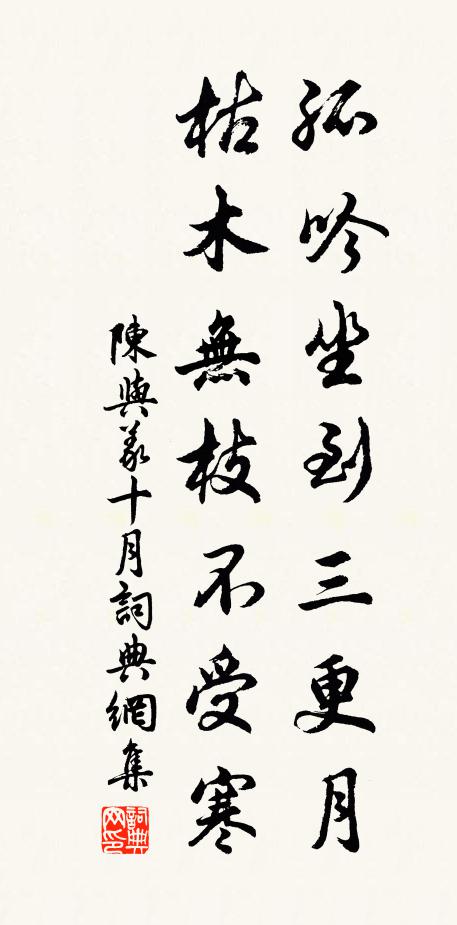 孤吟坐到三更月
枯木無枝不受寒
陳與義十月詞典網集
詞典网印